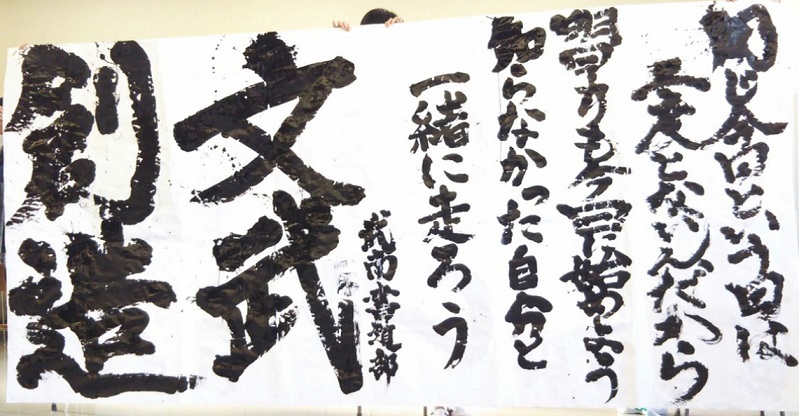 同じ今日という日は
二度とないんだから
始めよう
知らなかった自分と
一緒に走ろう
南書道部
文武
創造